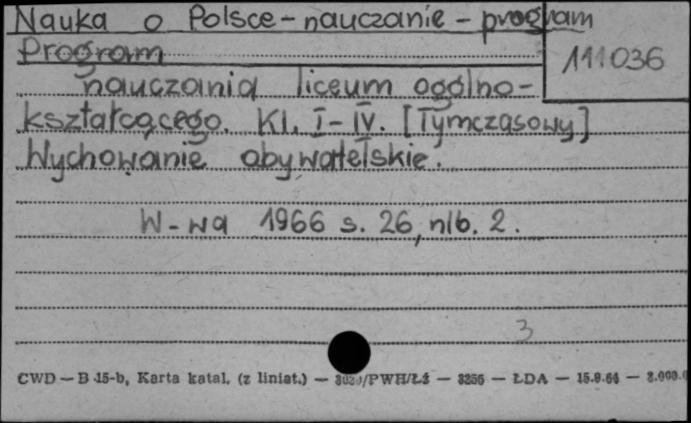 Nauka o Polsce - nauczanie - program
Program
111036
nauczania liceum ogólno-
kształcącego. Kl. I-IV. [Tymczasowy]
Wychowanie obywatelskie.
W-wa 1966 s. 26, nlb. 2.
3
CWD — B 15-b, Karta katal. (z liniat.) — /PWH/Łź — 3256 — ŁDA — 15.9.66 —